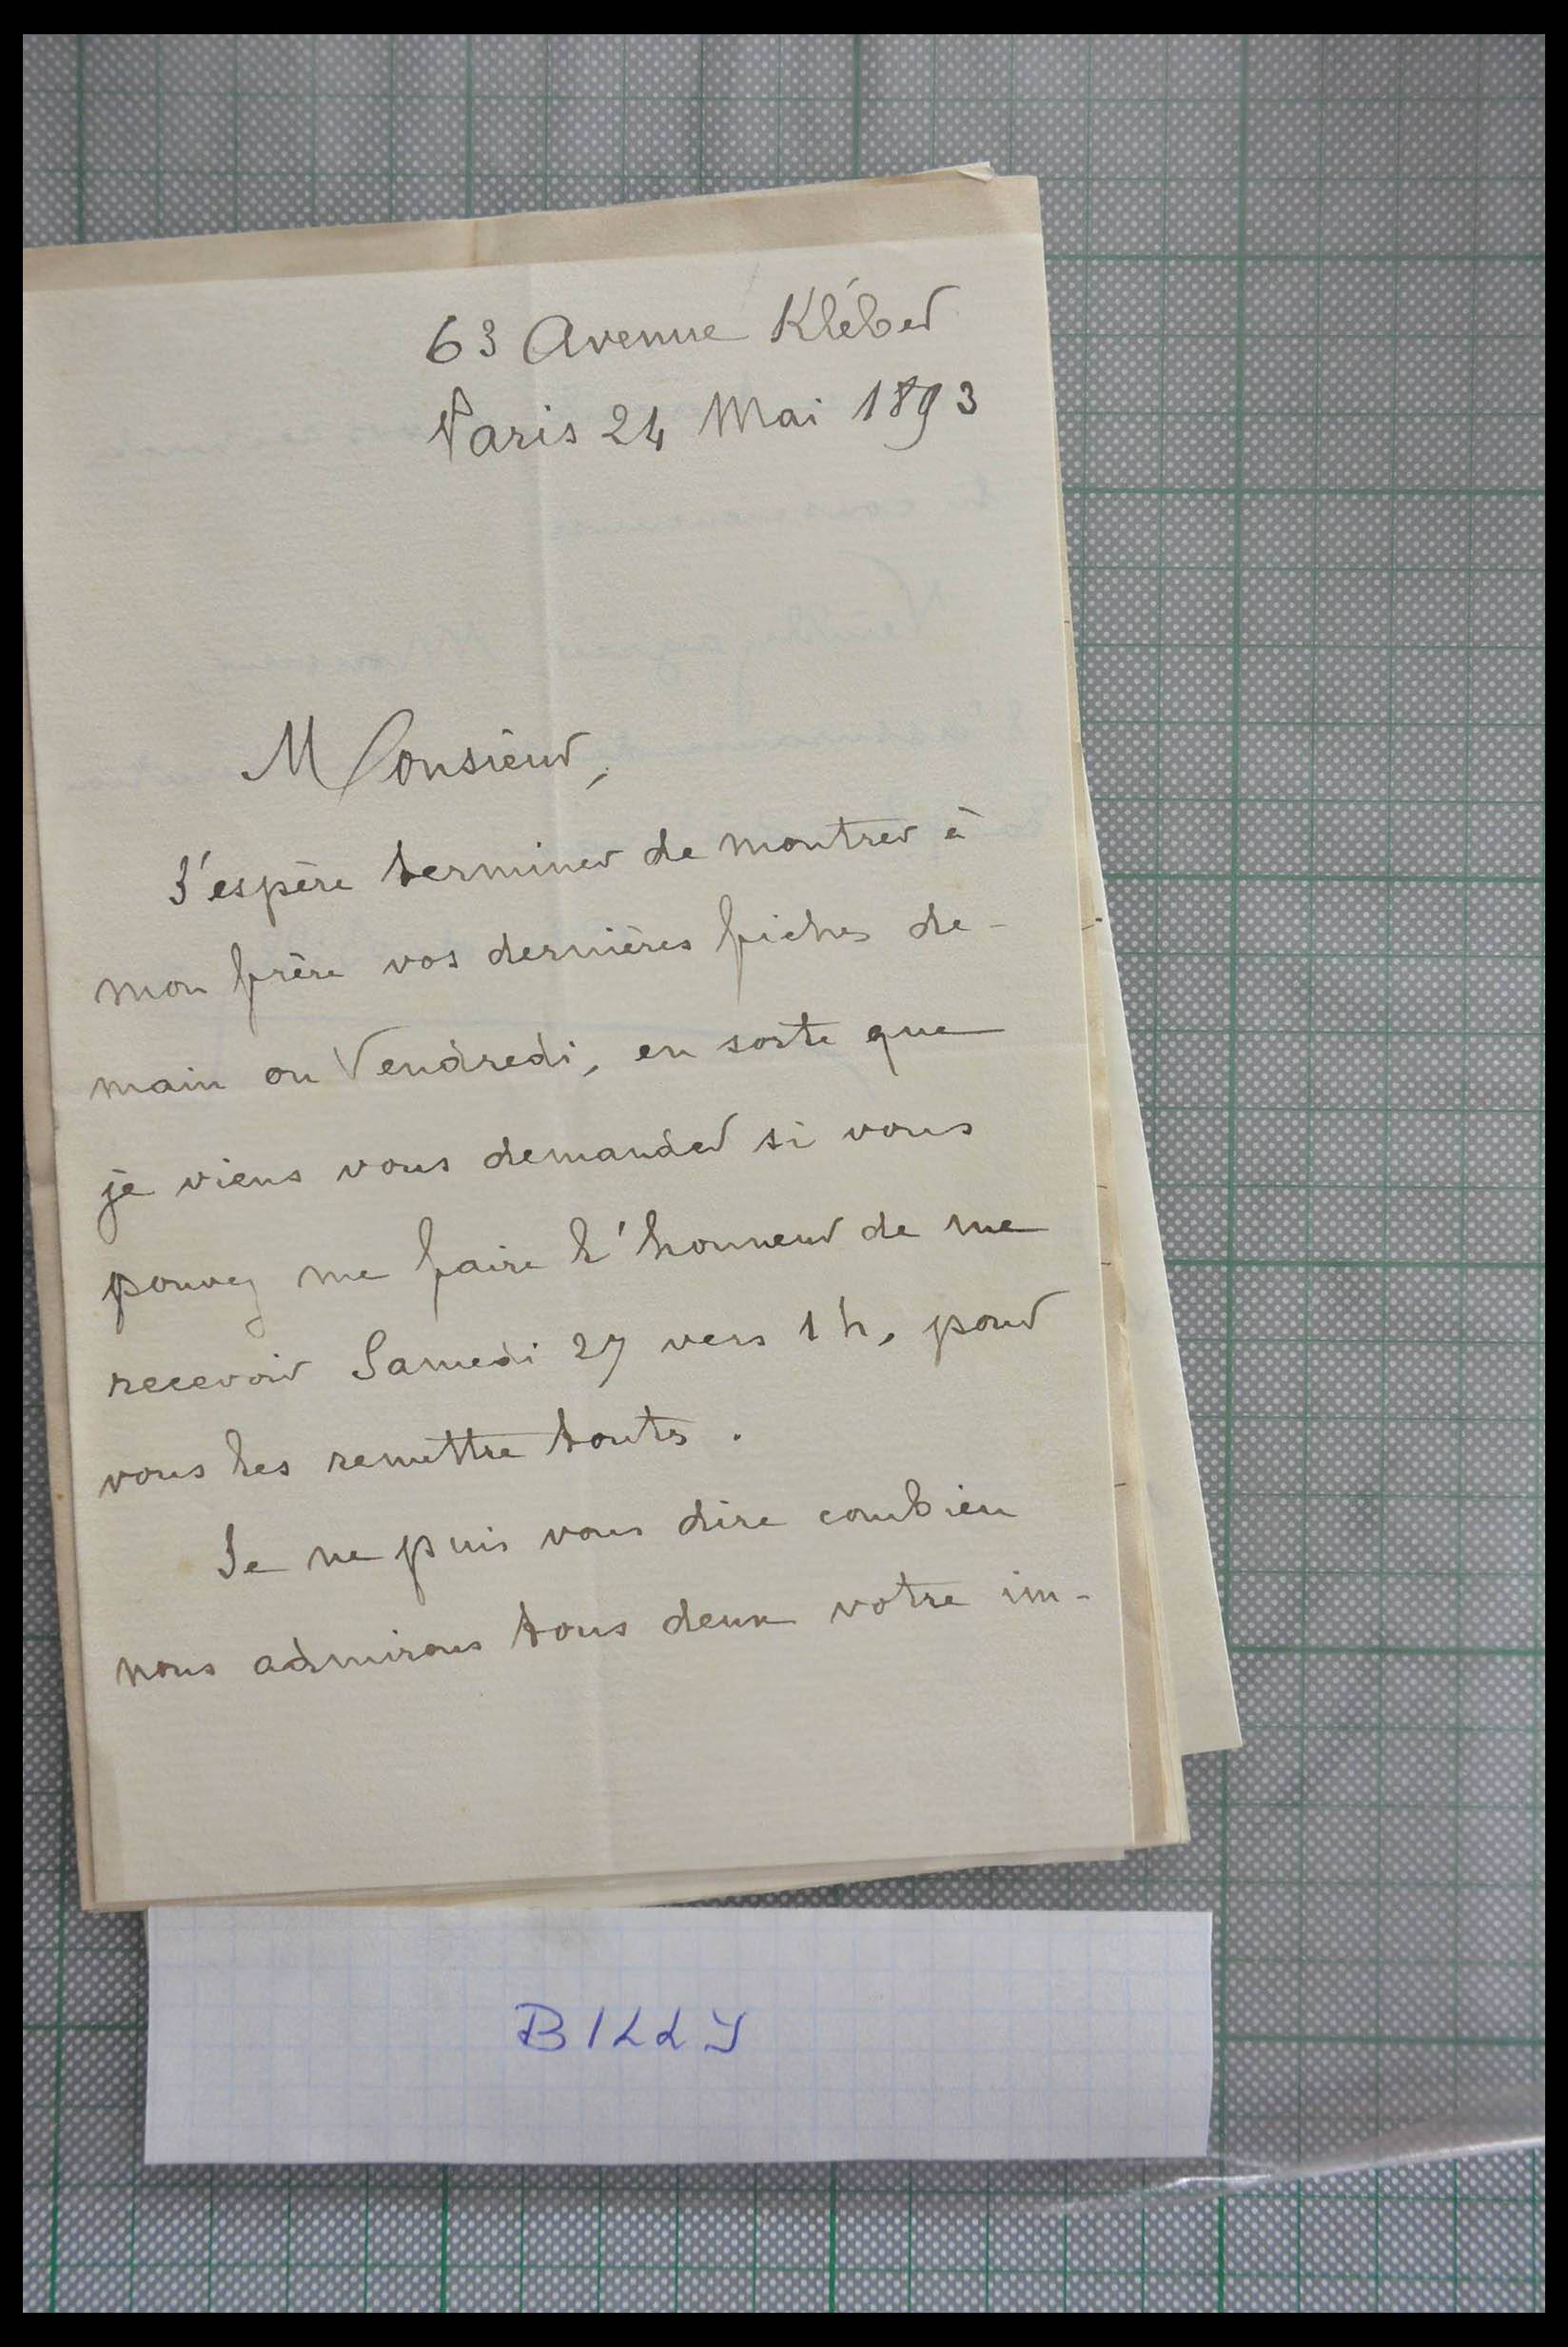 63 Avenue Kléber
Paris 24 Mai 1893
Monsieur,
J'espère terminer de montrer à
mon frère vos dernières fiches de-
main ou Vendredi, en sorte que
je viens vous demander si vous
pouvez me faire l'honneur de me
recevoir Samedi 27 vers 1 h. pour
vous les remettre toutes.
Je ne puis vous dire combien
nous admirons tous deux votre im-
BILLY